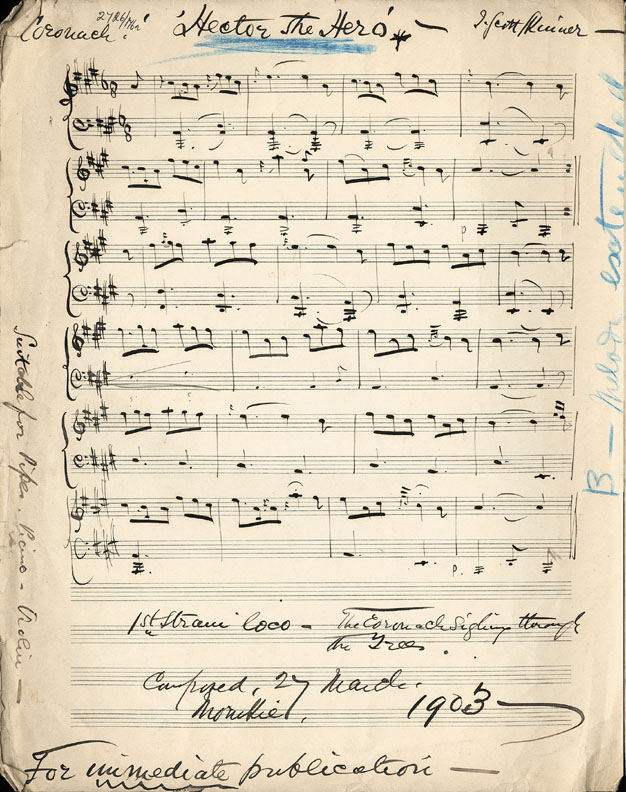 Coronach!
'Hector the Hero' —
J. Scott Skinner —
B — Melody extended
Suitable for Pipes. Piano - Violin —
1st Strain loco — The Coronach sighing through
the Trees.
Composed, 27 March.
Monikie,
1903
For immediate publication —